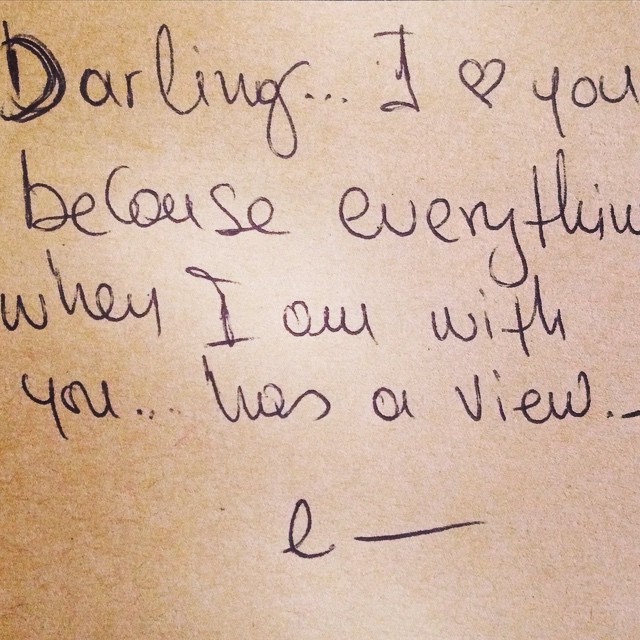 Darling... I ♡ you
because everythin
when I am with
you... has a view.-
e —